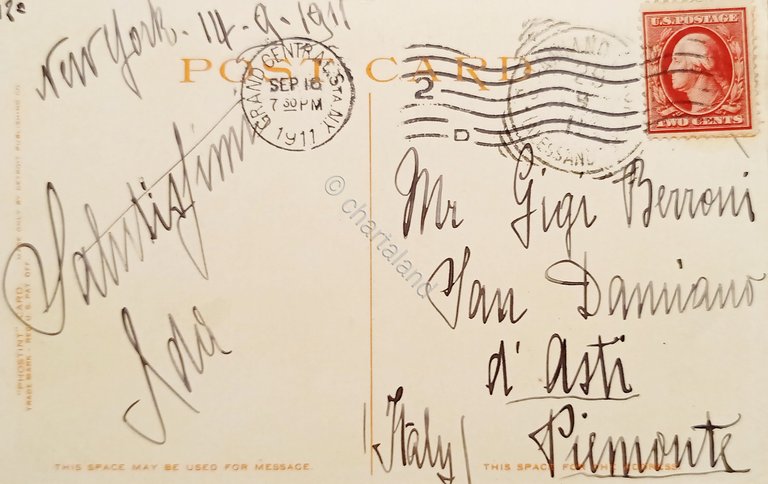 New York. 14-9-1911
POST CARD
GRAND CENTRAL STA. N.Y.
SEP 16
7 30 PM
1911
2
D
U.S. POSTAGE
TWO CENTS
Salutissimi
Ada
Mr Gigi Berroni
San Damiano
d'Asti
(Italy) Piemonte
© chartaland
"PHOSTINT" CARD MADE ONLY BY DETROIT PUBLISHING CO.
TRADE MARK - REG. U.S. PAT. OFF.
THIS SPACE MAY BE USED FOR MESSAGE.
THIS SPACE FOR THE ADDRESS.